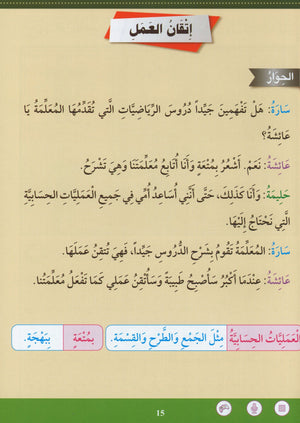 إِتْقَانُ العَمَلِ
الحِوَارُ
سَارَةُ: هَلْ تَفْهَمِينَ جَيِّداً دُرُوسَ الرِّيَاضِيَّاتِ الَّتِي تُقَدِّمُهَا المُعَلِّمَةُ يَا
عَائِشَةُ؟
عَائِشَةُ: نَعَمْ. أَشْعُرُ بِمُتْعَةٍ وَأَنَا أُتَابِعُ مُعَلِّمَتَنَا وَهِيَ تَشْرَحُ.
حَلِيمَةُ: وَأَنَا كَذَلِكَ، حَتَّى أَنَّنِي أُسَاعِدُ أُمِّي فِي جَمِيعِ العَمَلِيَّاتِ الحِسَابِيَّةِ
الَّتِي نَحْتَاجُ إِلَيْهَا.
سَارَةُ: المُعَلِّمَةُ تَقُومُ بِشَرْحِ الدُّرُوسِ جَيِّداً، فَهِيَ تُتْقِنُ عَمَلَهَا.
عَائِشَةُ: عِنْدَمَا أَكْبُرُ سَأُصْبِحُ طَبِيبَةً وَسَأُتْقِنُ عَمَلِي كَمَا تَفْعَلُ مُعَلِّمَتُنَا.
العَمَلِيَّاتُ الحِسَابِيَّةُ مِثْلَ الجَمْعِ وَالطَّرْحِ وَالقِسْمَةِ. بِمُتْعَةٍ بِبَهْجَةٍ.
15